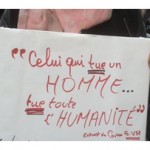 "Celui qui tue un
HOMME...
tue toute
l'HUMANITÉ"
Extrait du Coran